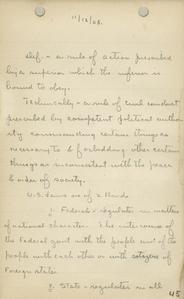 11/12/08.
Def. - a rule of action prescribed
by a superior which the inferior is
bound to obey.
Technically - a rule of civil conduct
prescribed by competent political author-
ity commanding certain things as
necessary to & forbidding other certain
things as inconsistent with the peace
& order of society.
U.S. Laws are of 2 kinds
1) Federal - regulates in matters
of national character. The intercourse of
the Federal govt with the people and of the
people with each other or with citizens of
Foreign states.
2) State - regulates in all
45